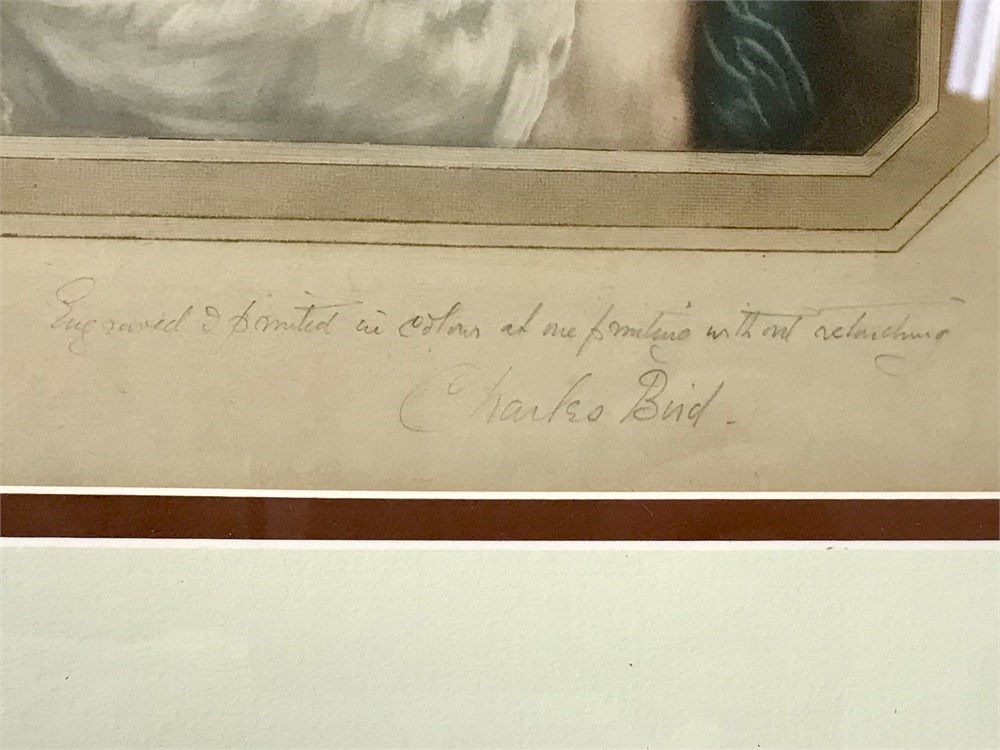 Engraved & printed in colour at one printing without retouching
Charles Bird.